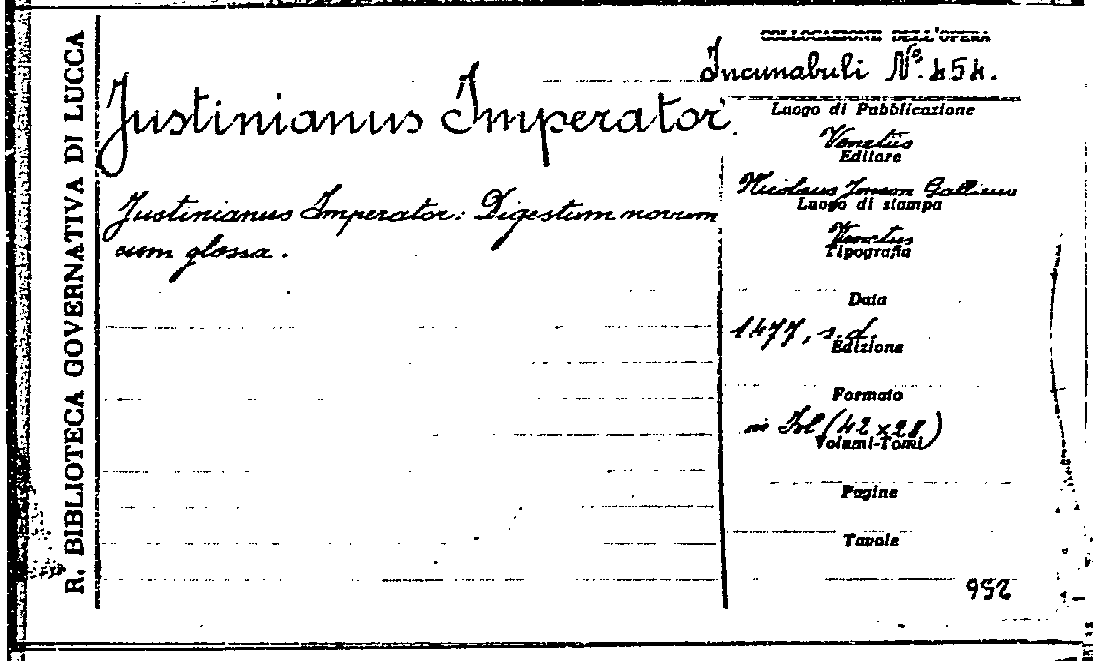 R. BIBLIOTECA GOVERNATIVA DI LUCCA
Justinianus Imperator.
Justinianus Imperator: Digestum novum
cum glossa.
COLLOCAZIONE DELL'OPERA
Incunabuli No. 454.
Luogo di Pubblicazione
Venetiis
Editore
Nicolaus Jenson Gallicus
Luogo di stampa
Venetiis
Tipografia
Data
1477, s.d.
Edizione
Formato
in fol (42 x 28)
Volumi-Tomi
Pagine
Tavole
952